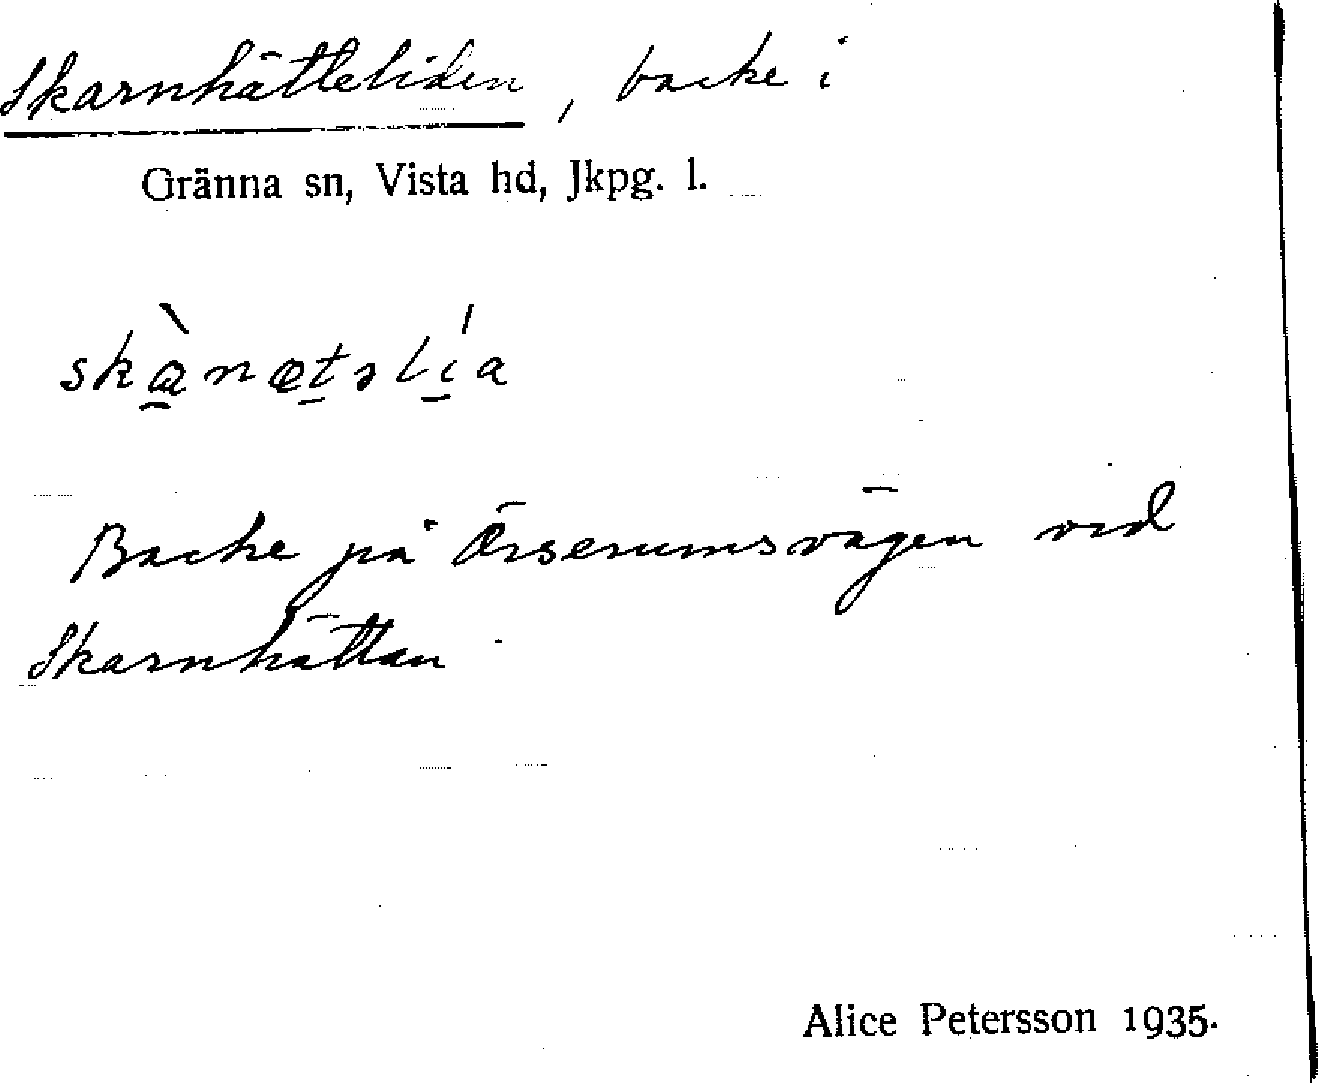 Skarnhätteliden, backe i
Gränna sn, Vista hd, Jkpg. l.
skànætslía
Backe på Örserumsvägen vid
Skarnhättan.
Alice Petersson 1935.